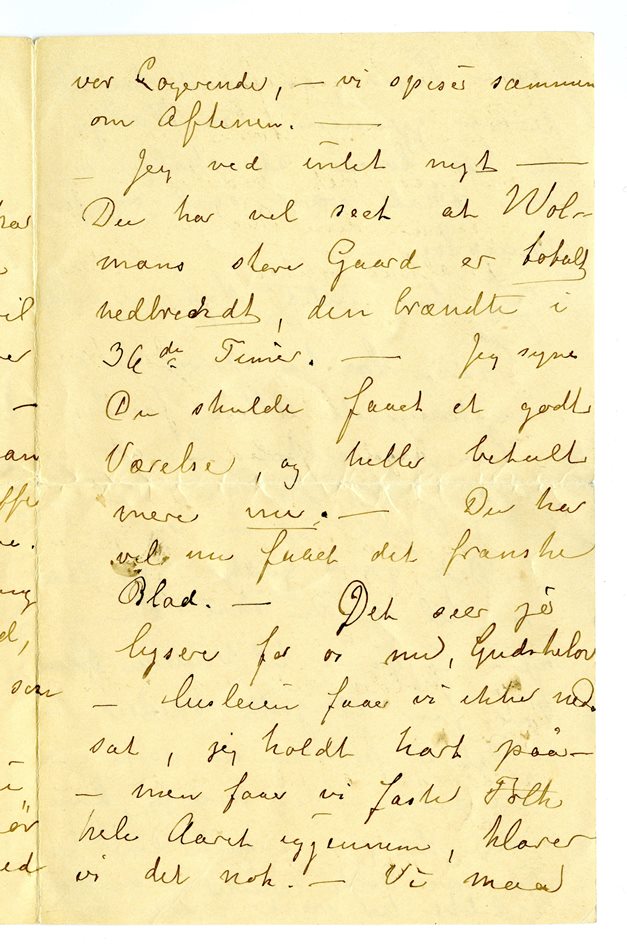 vor Logerende, – vi spiser sammen
om Aftenen. –
– Jeg ved intet nyt –
Du har vel seet at Wol-
mans store Gaard er totalt
nedbrændt, den brændte i
36 de Timer. – Jeg synes
Du skulde faaet et godt
Værelse, og heller betalt
mere nu. – Du har
vel nu faaet det franske
Blad. – Det seer jo
lysere for os nu, Gudskelov
– husleien faaer vi ikke ned-
sat, jeg holdt hart paa –
– men faaer vi faste Folk
hele Aaret igjennem, klarer
vi det nok. – Vi maa
har
vil
er
–
an
ffe
e.
ng
d,
som
i
ør
ed